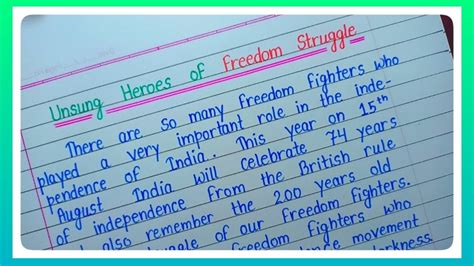 Unsung Heroes of Freedom Struggle
There are so many freedom fighters who
played a very important role in the inde-
pendence of India. This year on 15th
August India will celebrate 74 years
of independence from the British rule
also remember the 200 years old
of our freedom fighters.
freedom fighters who
movement